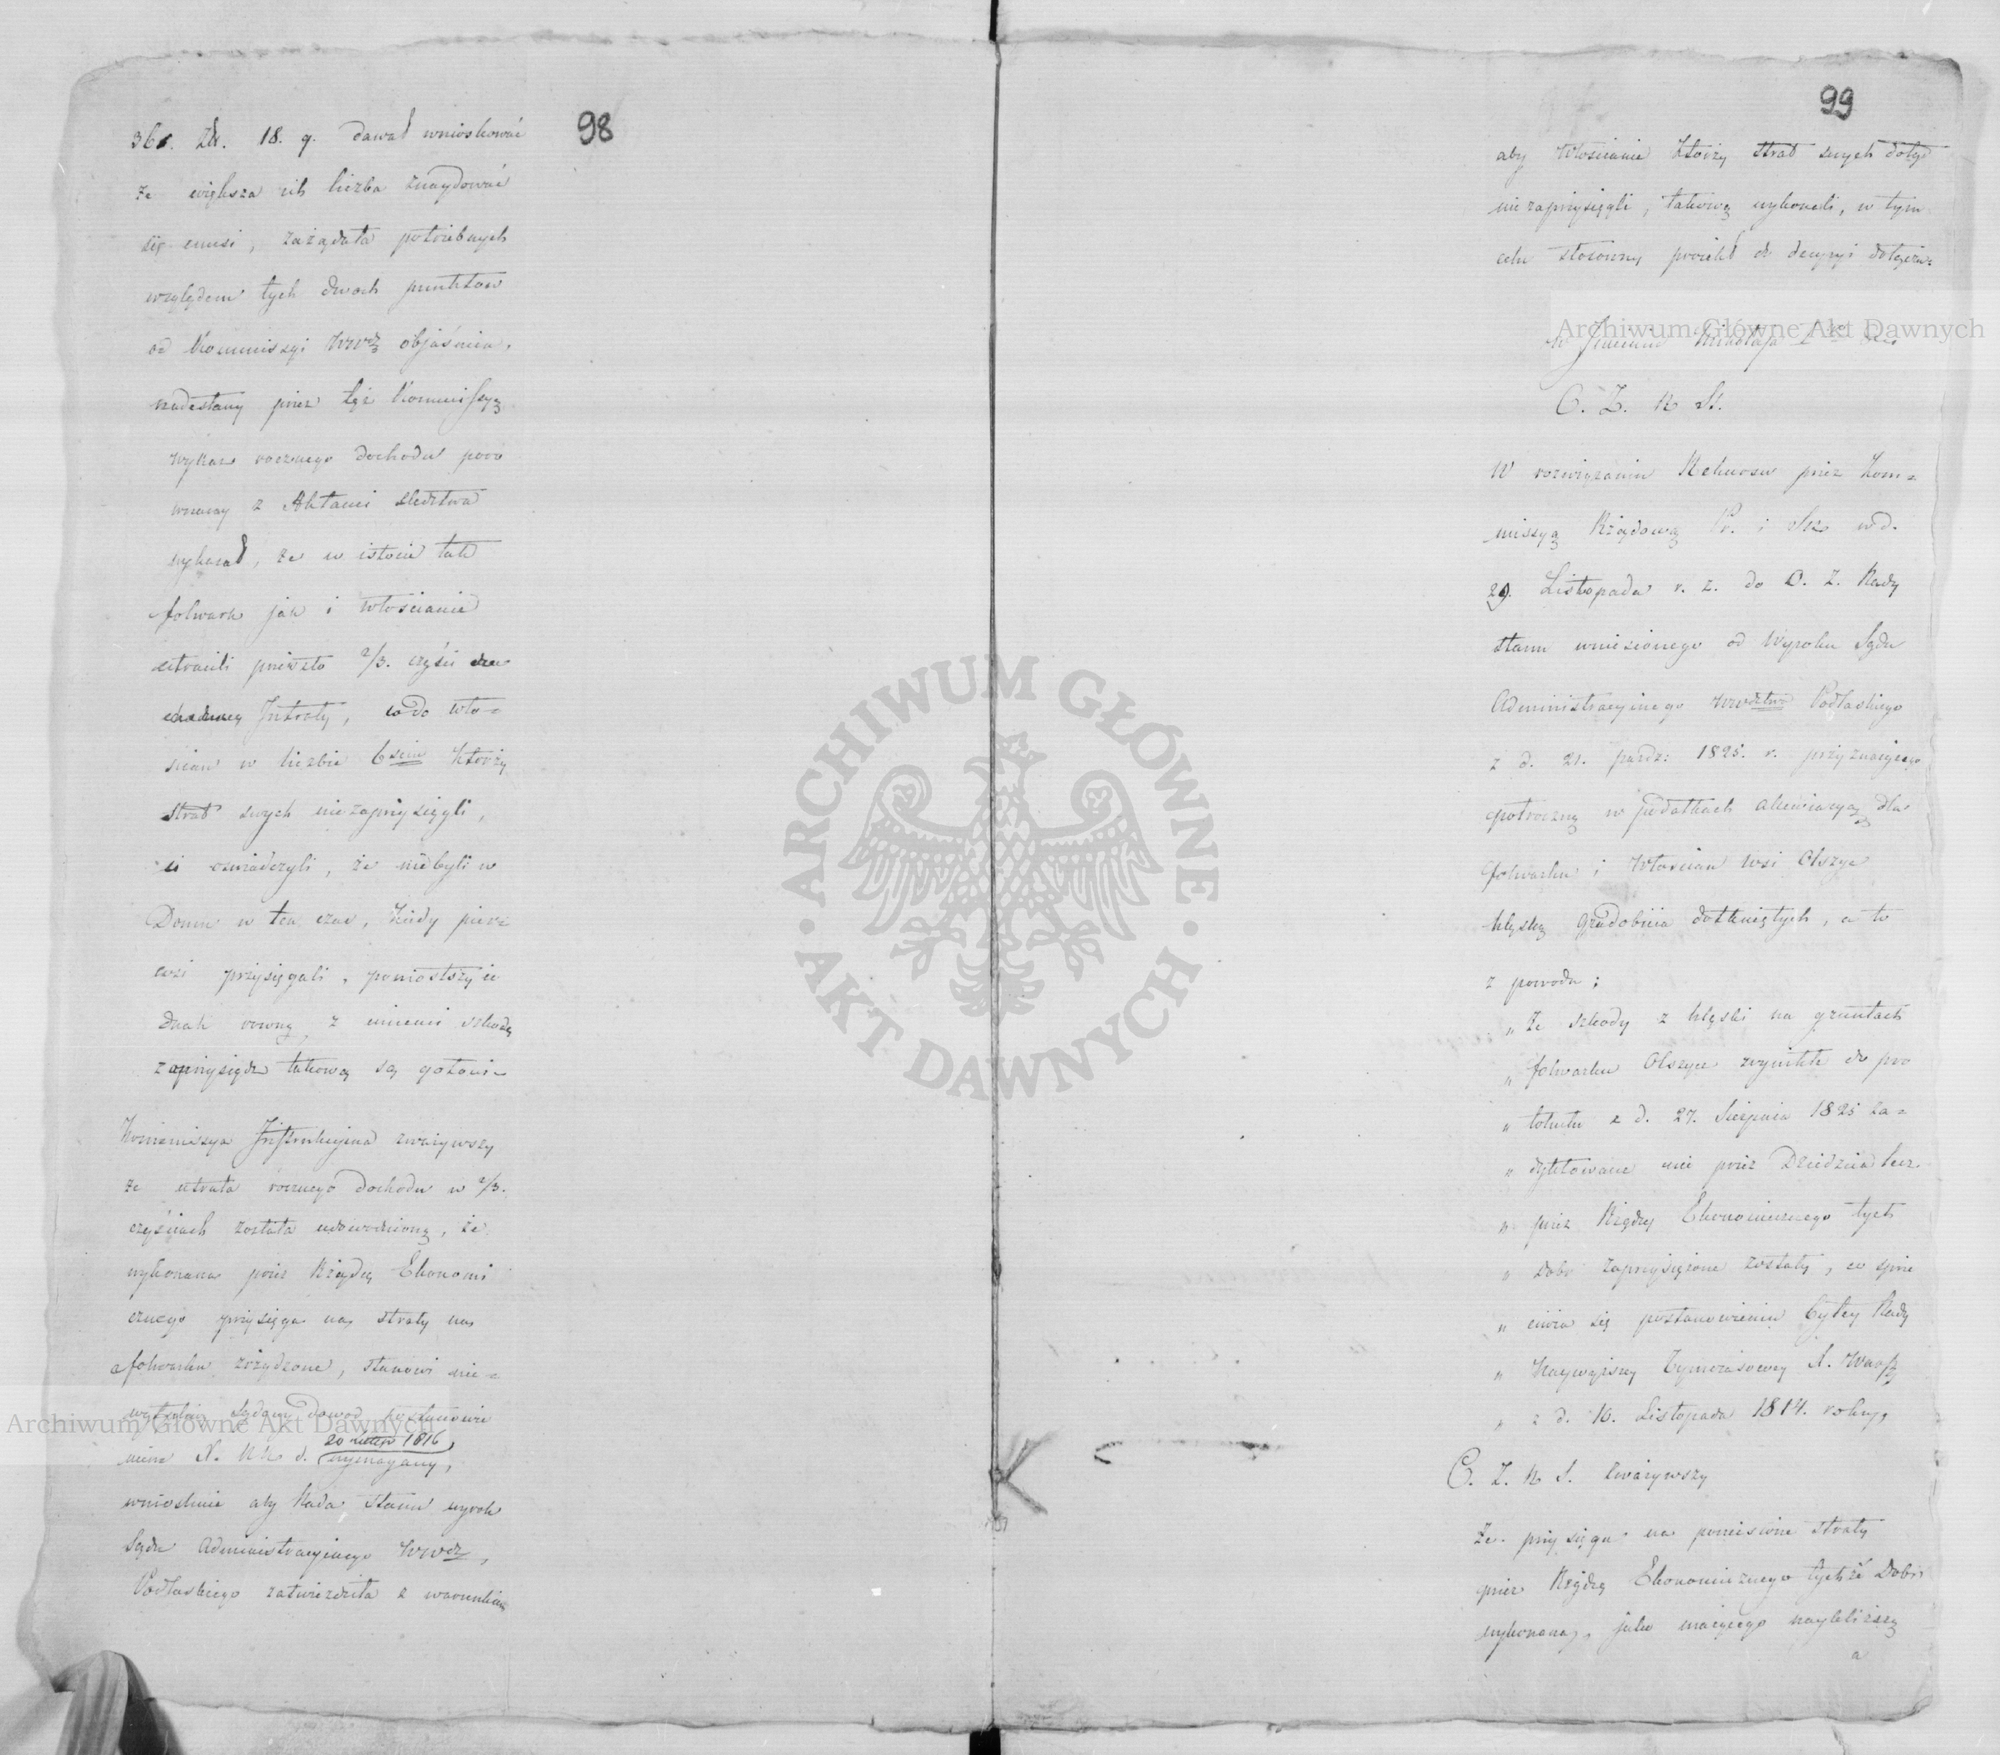 98
36. Zł. 18. g. dawał wnioskować
że większa ich liczba znaydować
się musi, zażądała potrzebnych
względem tych dwoch punktow
od Kommissyi Wwdz objaśnień,
nadesłany przez tęż Kommissyą
wykaz rocznego dochodu poro
wnany z Aktami sledztwa
wykazał, że w istocie tak
folwark jak i włościanie
utracili przeszło 2/3. części
Intraty, co do wło=
ścian w liczbie 6ściu którzy
strat swych niezaprzysięgli,
ci oświadczyli, że niebyli w
Domu w ten czas, kiedy pierw
przysięgali, poniosłszy ie
dnak rowną z innemi szkodę
zaprzysiądz takową są gotowi
Kommissya Instrukcyjna zważywszy
że utrata rocznego dochodu w 2/3.
częściach została udowodnioną, że
wykonana przez Rządcę Ekonomi
cznego przysięga na straty na
folwarku zrządzone, stanowi
Sądom dowod postanowie
niem X. N. d. 20 lutego 1816
wymagany,
wniosła aby Rada Stanu wyrok
Sądu Administracyjnego Wwdz,
Podlaskiego zatwierdziła z warunkiem
99
aby Włościanie którzy strat swych dotąd
niezaprzysięgli, takową wykonali, w tym
celu stosowny do decyzyi
W Imieniu Mikołaja I
C. Z. R St.
W rozwiązaniu Rekursu przez Kom=
missyą Rządową P. i Sk. w d.
29. Listopada r. z. do O. Z. Rady
stanu wniesionego od Wyroku Sądu
Administracyjnego Wwdztwa Podlaskiego
z d. 21. pazdz: 1825. r. przyznaiącego
połroczną w podatkach allewiacyą dla
folwarku i Włościan wsi Olszyc
klęską gradobicia dotkniętych, a to
z powodu;
„ Że szkody z klęski na gruntach
„ folwarku Olszyc wynikłe do pro
„ tokułu z d. 27. Sierpnia 1825 za=
„ dyktowane nie przez Dziedzica lecz
„ przez Rządcę Ekonomicznego tych
„ Dobr zaprzysiężone zostały, co sprze
„ ciwia się postanowieniu byłey Rady
„ Naywyższey Tymczasowey X. Warsz
„ z d. 10. Listopada 1814. roku,
O. Z. R S. Zważywszy
Że przysięga na poniesione straty
przez Rządcę Ekonomicznego tychże Dobr
wykonana, jako maiącego naybliższą
Archiwum Główne Akt Dawnych
Archiwum Główne Akt Dawnych
ARCHIWUM GŁÓWNE · AKT DAWNYCH ·